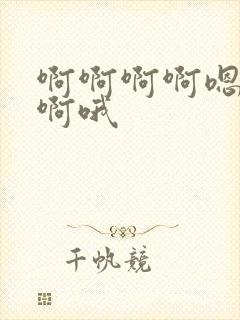 啊啊啊啊嗯
啊哦
千帆竞